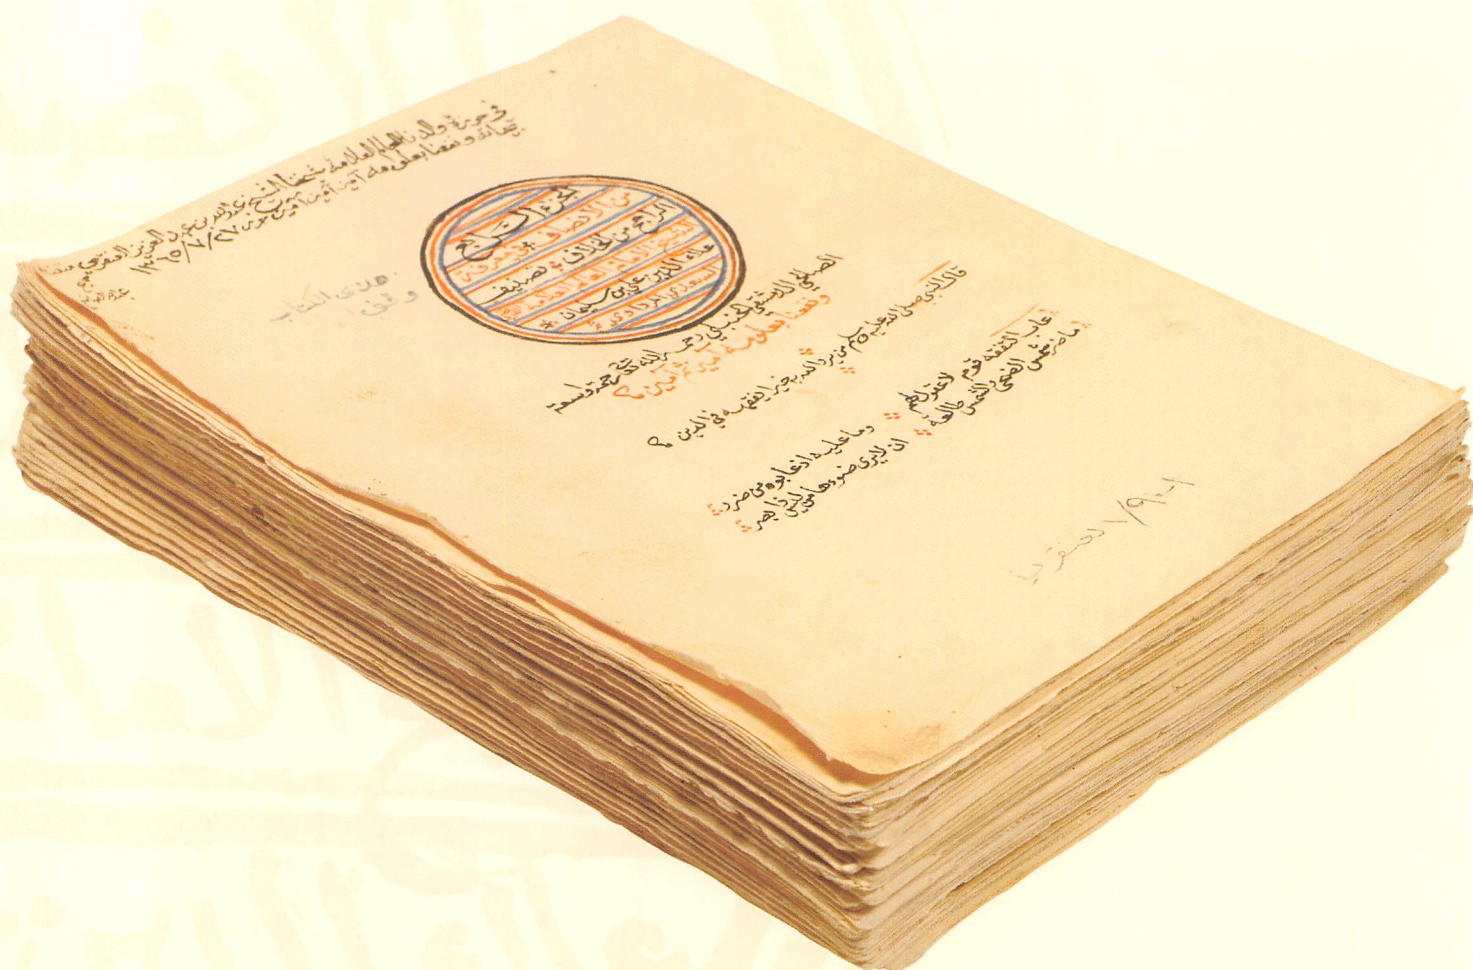 في حوزة والدنا العالم العلامة شيخنا الشيخ عبدالله بن عبد العزيز العنقري متعنا
بحياته ونفعنا بعلومه آمين آمين آمين حرر ١٣٦٥/٧/٢٧
هذى الكتاب
وقف
الجزء الرابع
من الانصاف في معرفة
الراجح من الخلاف تصنيف
الشيخ الامام العالم العلامة
علاء الدين علي بن سليمان
السعدي المرداوي
الصالحي الدمشقي الحنبلي رحمه الله تعالى رحمة واسعة
ونفعنا بعلومه آمين ثم آمين
قال النبي صلى الله عليه وسلم من يرد الله به خيرا يفقهه في الدين
عاب التفقه قوم لا عقول لهم وما عليه اذا عابوه من ضرر
ما ضر شمس الضحى والشمس طالعة ان لا يرى ضوءها من ليس ذا بصر